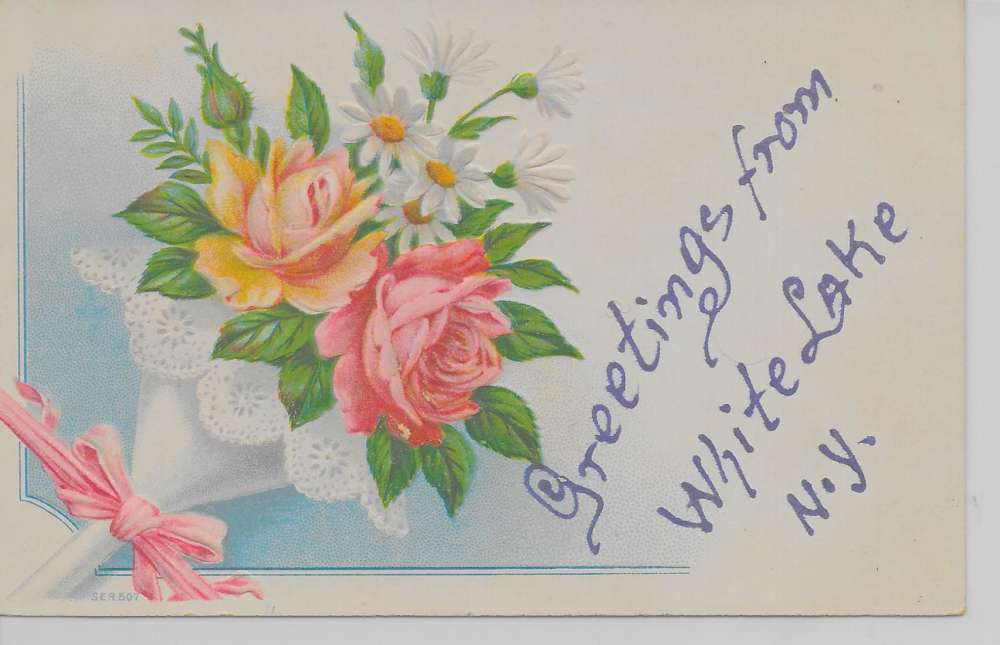 Greetings from
White Lake
N.Y.
SER.507